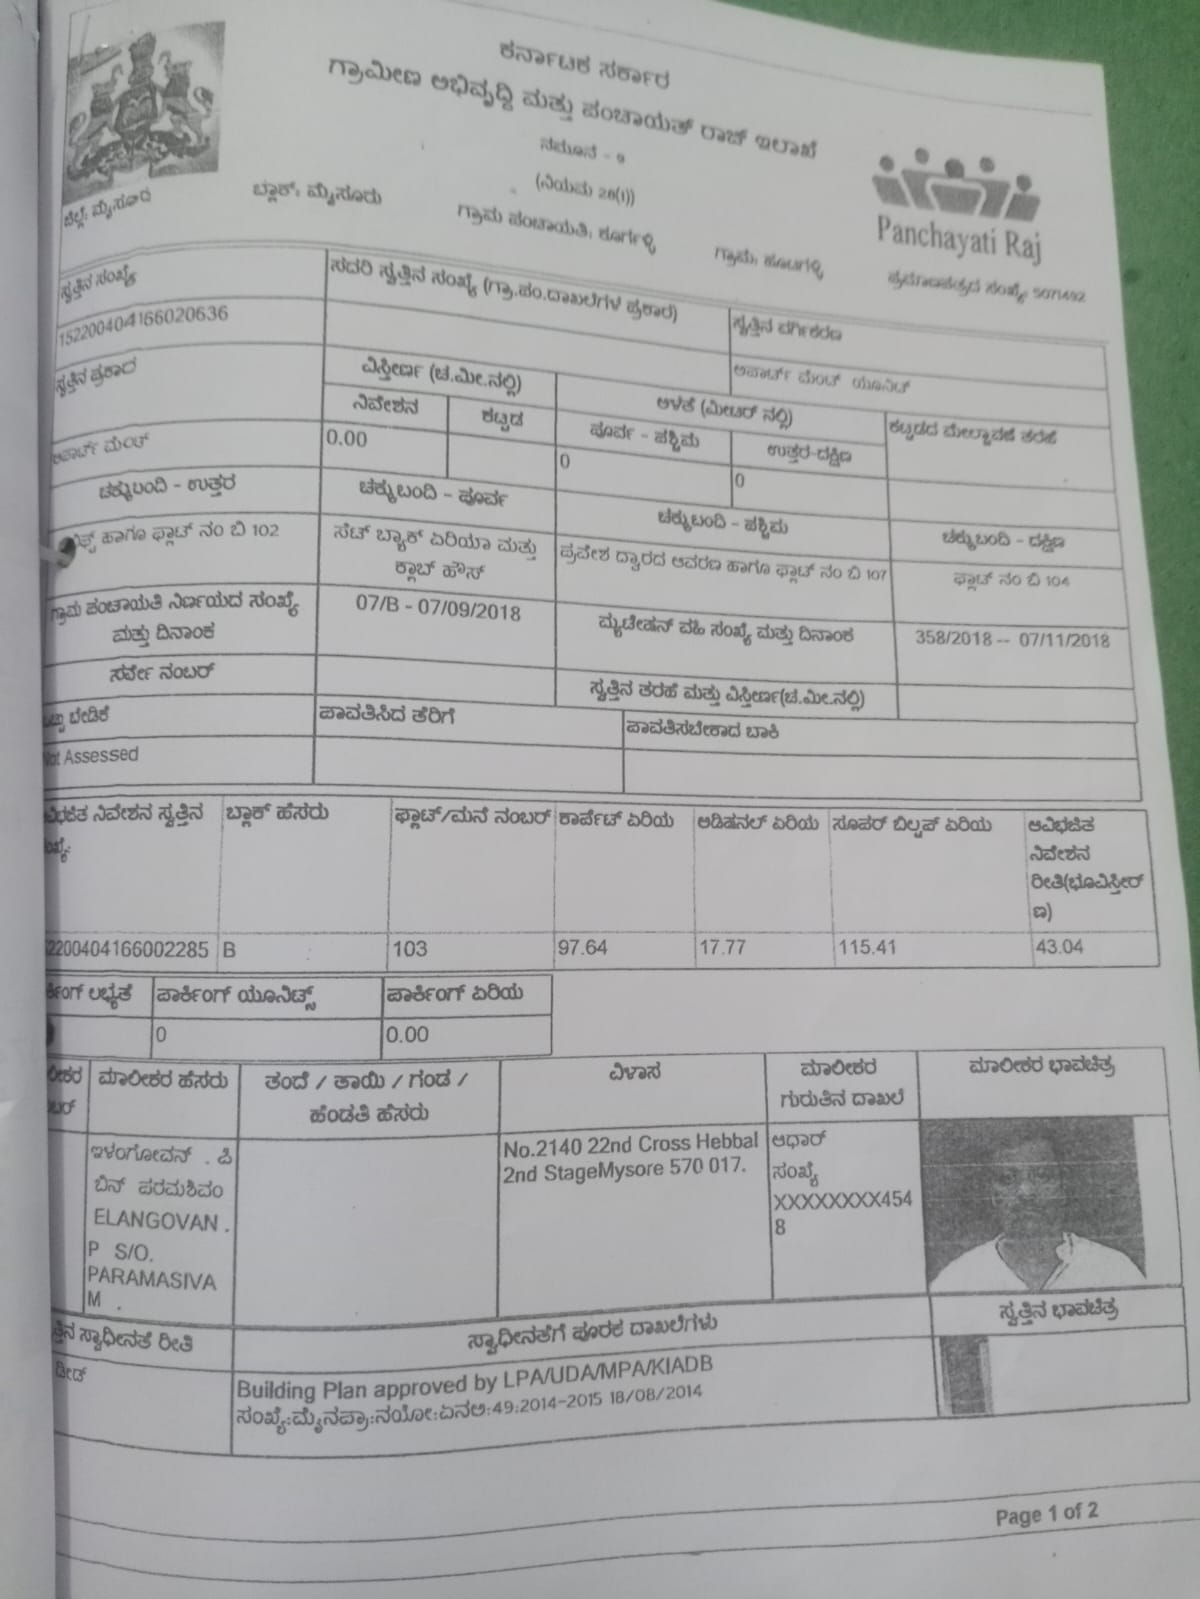 ಕರ್ನಾಟಕ ಸರ್ಕಾರ
ಗ್ರಾಮೀಣ ಅಭಿವೃದ್ಧಿ ಮತ್ತು ಪಂಚಾಯತ್ ರಾಜ್ ಇಲಾಖೆ
ನಮೂನೆ - ೯
(ನಿಯಮ 28(1))
Panchayati Raj
ಜಿಲ್ಲೆ: ಮೈಸೂರು ಬ್ಲಾಕ್: ಮೈಸೂರು ಗ್ರಾಮ ಪಂಚಾಯತಿ: ಕೂರ್ಗಳ್ಳಿ ಗ್ರಾಮ: ಹೂಟಗಳ್ಳಿ ಪ್ರಮಾಣಪತ್ರದ ಸಂಖ್ಯೆ
ಸ್ವತ್ತಿನ ಸಂಖ್ಯೆ ಸದರಿ ಸ್ವತ್ತಿನ ಸಂಖ್ಯೆ (ಗ್ರಾ.ಪಂ.ದಾಖಲೆಗಳ ಪ್ರಕಾರ) ಸ್ವತ್ತಿನ ವರ್ಗೀಕರಣ
152200404166020636 ಅಪಾರ್ಟ್ ಮೆಂಟ್ ಯೂನಿಟ್
ಸ್ವತ್ತಿನ ಪ್ರಕಾರ ವಿಸ್ತೀರ್ಣ (ಚ.ಮೀ.ನಲ್ಲಿ) ಅಳತೆ (ಮೀಟರ್ ನಲ್ಲಿ) ಕಟ್ಟಡದ ಮೇಲ್ಛಾವಣಿ ತರಹೆ
ನಿವೇಶನ ಕಟ್ಟಡ ಪೂರ್ವ - ಪಶ್ಚಿಮ ಉತ್ತರ-ದಕ್ಷಿಣ
ಅಪಾರ್ಟ್ ಮೆಂಟ್ 0.00 0 0
ಚಕ್ಕುಬಂದಿ - ಉತ್ತರ ಚಕ್ಕುಬಂದಿ - ಪೂರ್ವ ಚಕ್ಕುಬಂದಿ - ಪಶ್ಚಿಮ ಚಕ್ಕುಬಂದಿ - ದಕ್ಷಿಣ
ಹಾಗೂ ಫ್ಲಾಟ್ ನಂ ಬಿ 102 ಸೆಟ್ ಬ್ಯಾಕ್ ಏರಿಯಾ ಮತ್ತು ಪ್ರವೇಶ ದ್ವಾರದ ಆವರಣ ಹಾಗೂ ಫ್ಲಾಟ್ ನಂ ಬಿ 107 ಫ್ಲಾಟ್ ನಂ ಬಿ 104
ಕ್ಲಾಬ್ ಹೌಸ್
ಗ್ರಾಮ ಪಂಚಾಯತಿ ನಿರ್ಣಯದ ಸಂಖ್ಯೆ 07/B - 07/09/2018 ಮ್ಯುಟೇಷನ್ ವಹಿ ಸಂಖ್ಯೆ ಮತ್ತು ದಿನಾಂಕ 358/2018 -- 07/11/2018
ಮತ್ತು ದಿನಾಂಕ
ಸರ್ವೇ ನಂಬರ್ ಸ್ವತ್ತಿನ ತರಹೆ ಮತ್ತು ವಿಸ್ತೀರ್ಣ(ಚ.ಮೀ.ನಲ್ಲಿ)
ಬೇಡಿಕೆ ಪಾವತಿಸಿದ ತೆರಿಗೆ ಪಾವತಿಸಬೇಕಾದ ಬಾಕಿ
Not Assessed
ನಿವೇಶನ ಸ್ವತ್ತಿನ ಬ್ಲಾಕ್ ಹೆಸರು ಫ್ಲಾಟ್/ಮನೆ ನಂಬರ್ ಕಾರ್ಪೆಟ್ ಏರಿಯ ಅಡಿಷನಲ್ ಏರಿಯ ಸೂಪರ್ ಬಿಲ್ಟಪ್ ಏರಿಯ ಅವಿಭಜಿತ
ನಿವೇಶನ
ರೀತಿ(ಭೂವಿಸ್ತೀರ್
ಣ)
2200404166002285 B 103 97.64 17.77 115.41 43.04
ಲಭ್ಯತೆ ಪಾರ್ಕಿಂಗ್ ಯೂನಿಟ್ಸ್ ಪಾರ್ಕಿಂಗ್ ಏರಿಯ
0 0.00
ಮಾಲೀಕರ ಹೆಸರು ತಂದೆ / ತಾಯಿ / ಗಂಡ / ವಿಳಾಸ ಮಾಲೀಕರ ಮಾಲೀಕರ ಭಾವಚಿತ್ರ
ಹೆಂಡತಿ ಹೆಸರು ಗುರುತಿನ ದಾಖಲೆ
ಇಳಂಗೋವನ್ . ಪಿ No.2140 22nd Cross Hebbal ಆಧಾರ್
ಬಿನ್ ಪರಮಶಿವಂ 2nd StageMysore 570 017. ಸಂಖ್ಯೆ
ELANGOVAN . XXXXXXXX454
P S/O. 8
PARAMASIVA
M .
ಸ್ವಾಧೀನತೆ ರೀತಿ ಸ್ವಾಧೀನತೆಗೆ ಪೂರಕ ದಾಖಲೆಗಳು ಸ್ವತ್ತಿನ ಭಾವಚಿತ್ರ
ಡೀಡ್ Building Plan approved by LPA/UDA/MPA/KIADB
ಸಂಖ್ಯೆ:ಮೈನಪ್ರಾ:ನಯೋ:ಏನಅ:49:2014-2015 18/08/2014
Page 1 of 2